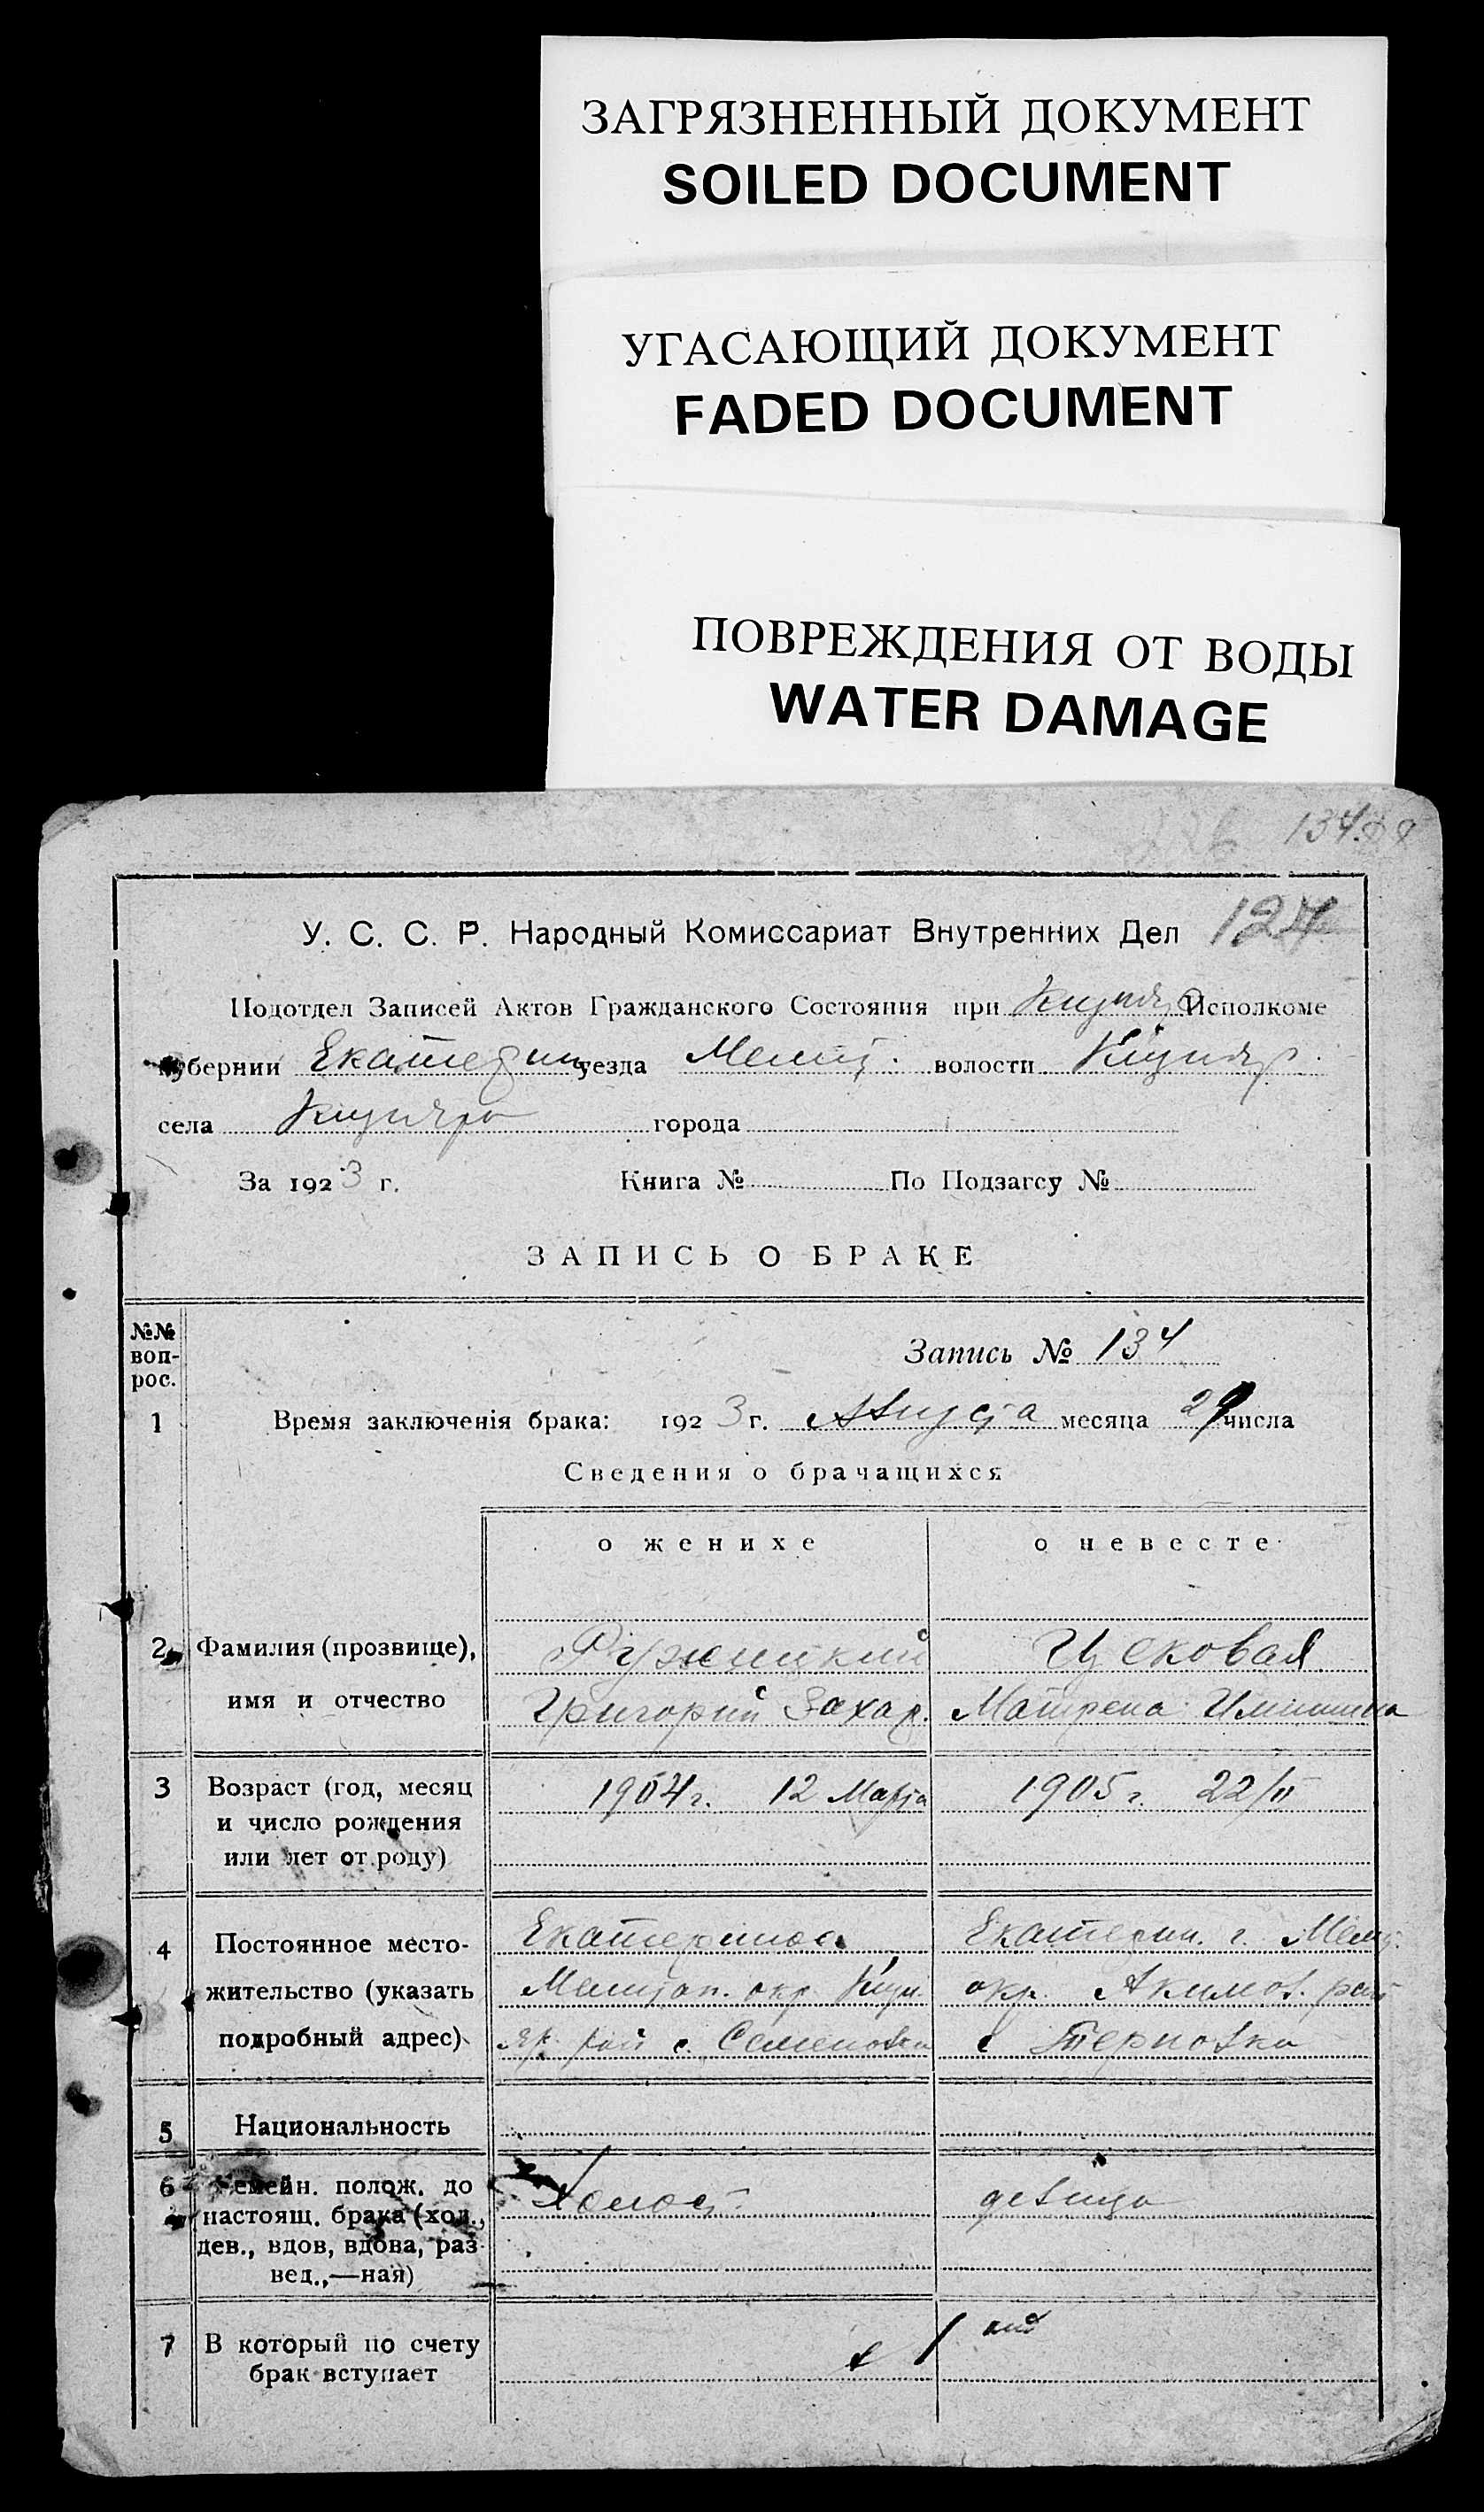 ЗАГРЯЗНЕННЫЙ ДОКУМЕНТ
SOILED DOCUMENT
УГАСАЮЩИЙ ДОКУМЕНТ
FADED DOCUMENT
ПОВРЕЖДЕНИЯ ОТ ВОДЫ
WATER DAMAGE
134
У. С. С. Р. Народный Комиссариат Внутренних Дел 124
Подотдел Записей Актов Гражданского Состояния при Исполкоме
губернии Екатерин уезда Мелит. волости Кизияр.
села Кизияры города
За 1923 г. Книга № По Подзагсу №
ЗАПИСЬ О БРАКЕ
№№ воп-рос.
Запись № 134
1 Время заключенія брака: 1923 г. Августа месяца 29 числа
Сведения о брачащихся
о женихе о невесте
2 Фамилия (прозвище), Ружицкий Цековая
имя и отчество Григорий Захар. Матрена
3 Возраст (год, месяц 1904 г. 12 Марта 1905 г. 22/II
и число рождения
или лет от роду)
4 Постоянное место- Екатеринос. Екатерин. г. Мелит.
жительство (указать Мелитоп. окр. Кизи окр. Акимов. рай
подробный адрес) яр. рай с. Семеновка с Терновка
5 Национальность
6 Семейн. полож. до Холост. девица
настоящ. брака (хол.,
дев., вдов, вдова, раз-
вед.,—ная)
7 В который по счету в 1 ый
брак вступает